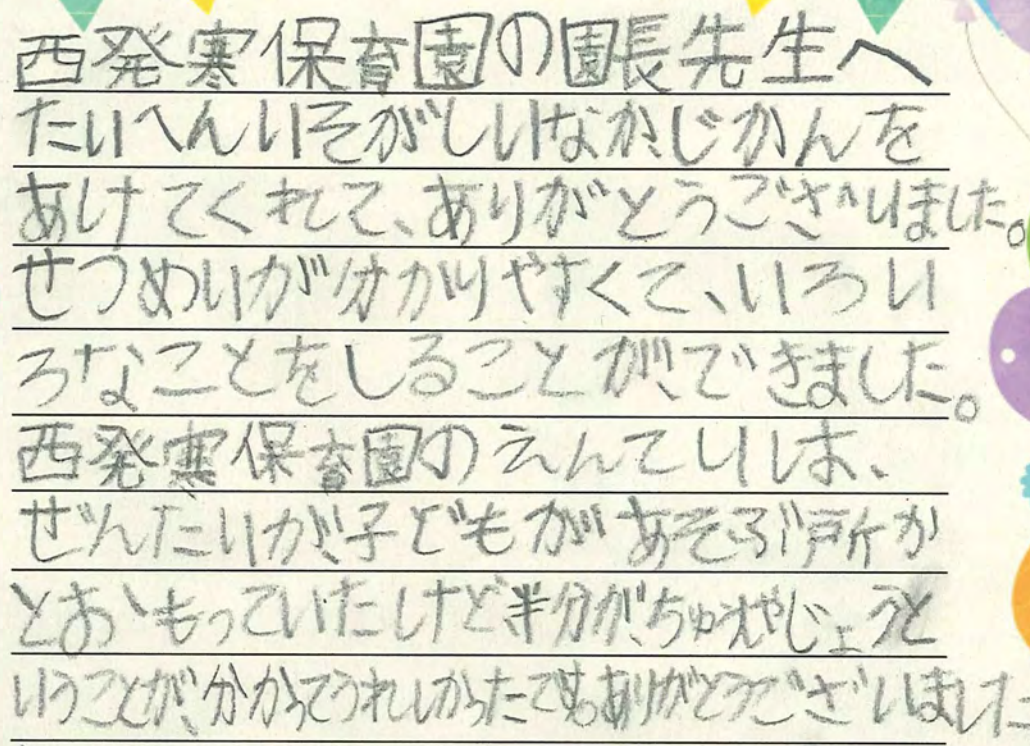 西発寒保育園の園長先生へ
たいへんいそがしいなかじかんを
あけてくれて、ありがとうございました。
せつめいが分かりやすくて、いろい
ろなことをしることができました。
西発寒保育園のえんていは、
ぜんたいが子どもがあそぶ所か
とおもっていたけど半分がちゅうしゃじょうと
いうことが分かってうれしかったです。ありがとうございました